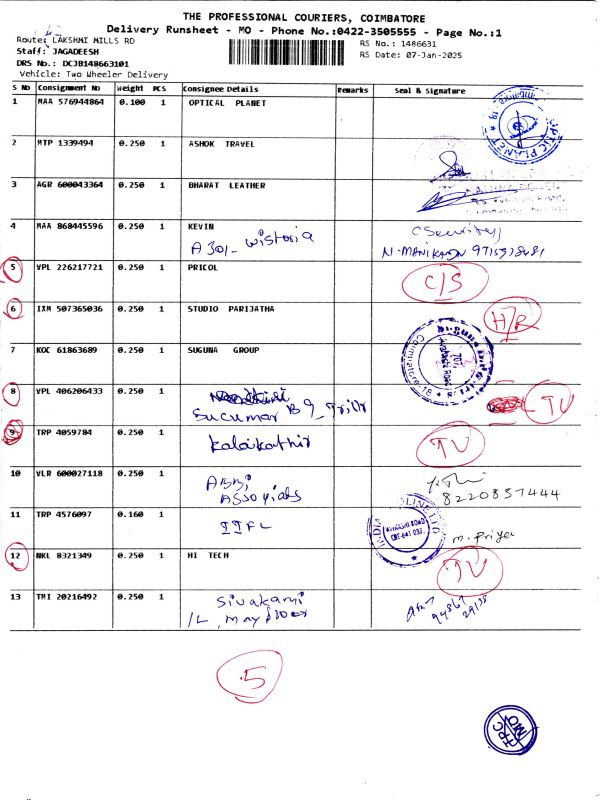 THE PROFESSIONAL COURIERS, COIMBATORE
Delivery Runsheet - MO - Phone No.:0422-3505555 - Page No.:1
Route: LAKSHMI MILLS RD
RS No.: 1486631
Staff: JAGADEESH
RS Date: 07-Jan-2025
DRS No.: DCJB148663101
Vehicle: Two Wheeler Delivery
S No Consignment No Weight PCS Consignee Details Remarks Seal & Signature
1 MAA 576944864 0.100 1 OPTICAL PLANET
2 MTP 1339494 0.250 1 ASHOK TRAVEL
3 AGR 600043364 0.250 1 BHARAT LEATHER
4 MAA 868445596 0.250 1 KEVIN
A301- Wistoria
(Security)
N. MANIKANDN 9715578481
5 VPL 226217721 0.250 1 PRICOL C/S
6 IXM 507365036 0.250 1 STUDIO PARIJATHA H/R
7 KOC 61863689 0.250 1 SUGUNA GROUP
8 VPL 406206433 0.250 1
Sucumar B 9_ TV
9 TRP 4059784 0.250 1 Kalaikathir TV
10 VLR 600027118 0.250 1 ABBi
Assopiats
8220837444
11 TRP 4576097 0.160 1 IIFL
M. Priya
12 NKL 8321349 0.250 1 HI TECH TV
13 TMI 20216492 0.250 1 Sivakami
1L, May floor
94867
29135
5